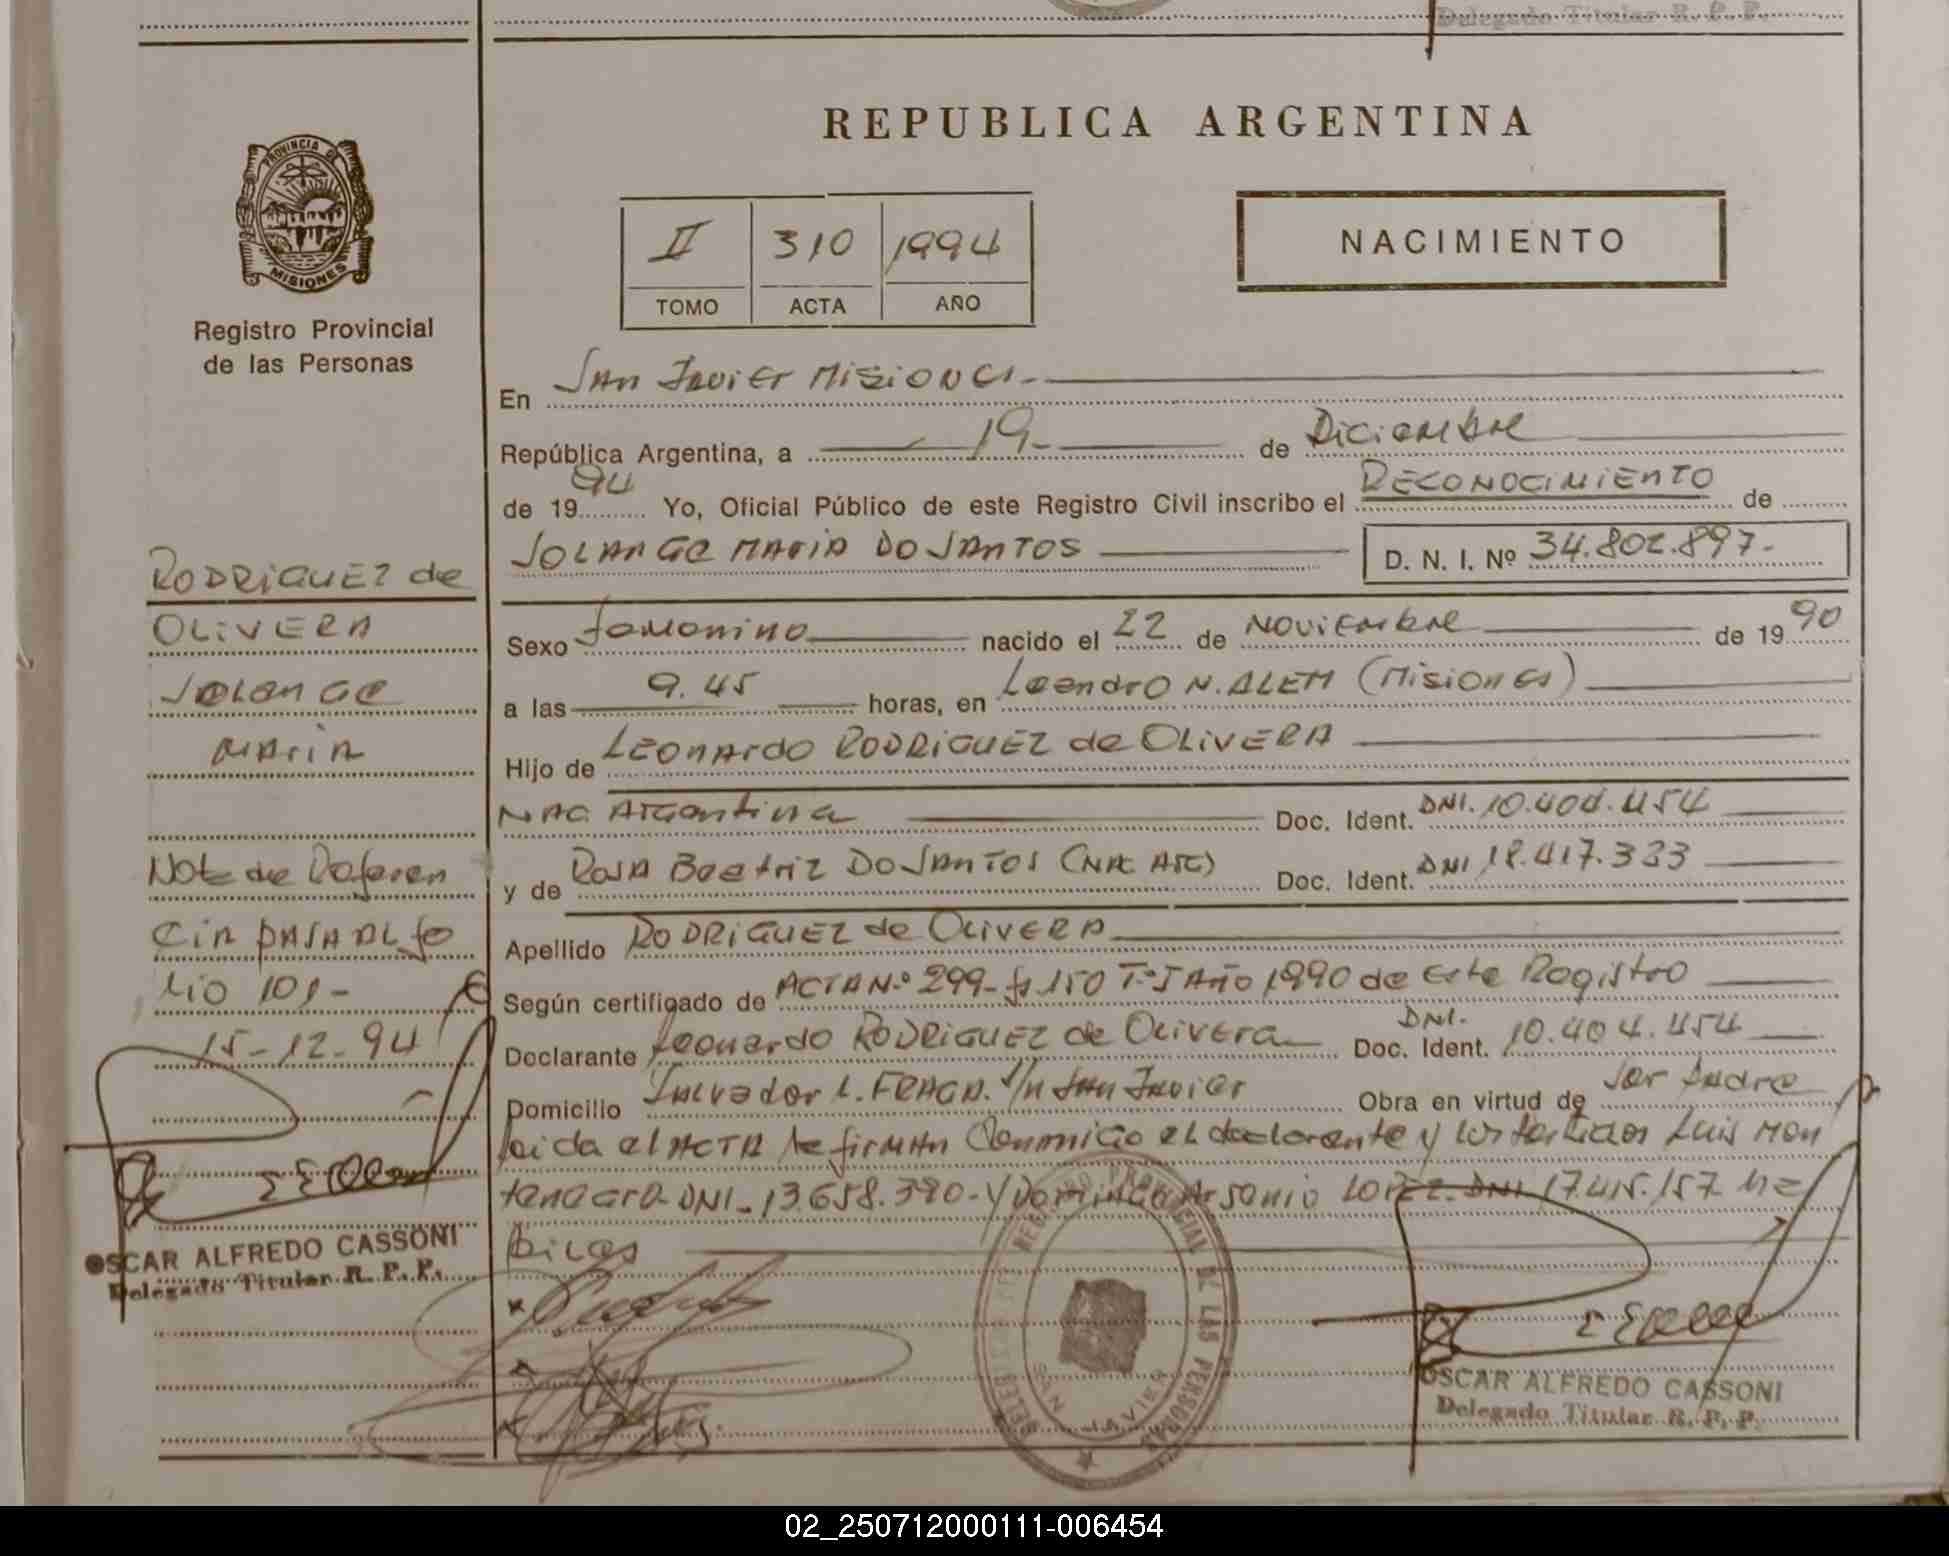 Delegado Titular R. P. P.
REPUBLICA ARGENTINA
PROVINCIA DE
MISIONES
Registro Provincial
de las Personas
II 310 1994
TOMO ACTA AÑO
NACIMIENTO
En San Javier Misiones.-
República Argentina, a 19- de Diciembre
de 1994 Yo, Oficial Público de este Registro Civil inscribo el RECONOCIMIENTO de
SOLANGE MARIA DO SANTOS D. N. I. Nº 34.802.897-
Sexo femenino nacido el 22 de Noviembre de 1990
a las 9.45 horas, en Leandro N. ALEM (Misiones)
Hijo de LEONARDO RODRIGUEZ de OLIVERA
NAC. Argentina Doc. Ident. DNI. 10.404.454
y de ROSA Beatriz DO SANTOS (NAC ARG) Doc. Ident. DNI 18.417.333
Apellido RODRIGUEZ de OLIVERA
Según certificado de ACTA Nº 299- fº 150 Tº I Año 1990 de este Registro
Declarante Leonardo RODRIGUEZ de Olivera Doc. Ident. DNI. 10.404.454
Domicilio Salvador L. FRAGA. S/n San Javier Obra en virtud de Ser Padre
leida el ACTA la firman Conmigo el declarante y los testigos Luis Mon
DNI- 13.658.390- y Domingo Arsenio LOPEZ- DNI 17.415.157
RODRIGUEZ de
OLIVERA
SOLANGE
MARIA
Nota de Referen
CIA PASA AL fo
lio 101-
15-12-94
OSCAR ALFREDO CASSONI
Delegado Titular R. P. P.
REGISTRO PROVINCIAL DE LAS PERSONAS
SAN JAVIER
OSCAR ALFREDO CASSONI
Delegado Titular R. P. P.
02_250712000111-006454